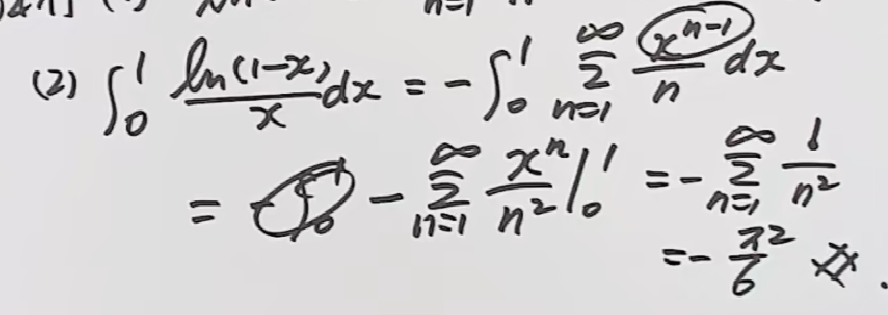 n=1
(2) ∫₀¹ ln(1-x)/x dx = -∫₀¹ ∑_{n=1}^∞ x^{n-1}/n dx
= -∑_{n=1}^∞ x^n/n² |₀¹ = -∑_{n=1}^∞ 1/n²
= -π²/6